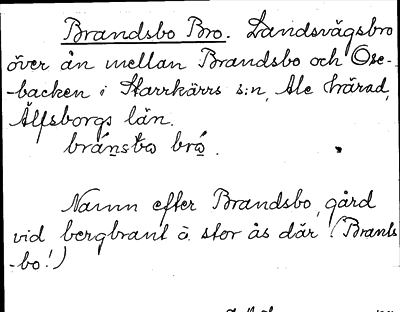 Brandsbo Bro. Landsvägsbro
över ån mellan Brandsbo och Ose-
-backen i Starrkärrs s:n, Ale härad,
Älfsborgs län.
bránsbo bró.
Namn efter Brandsbo, gård
vid bergbrant å stor ås där (Brants
-bo!)